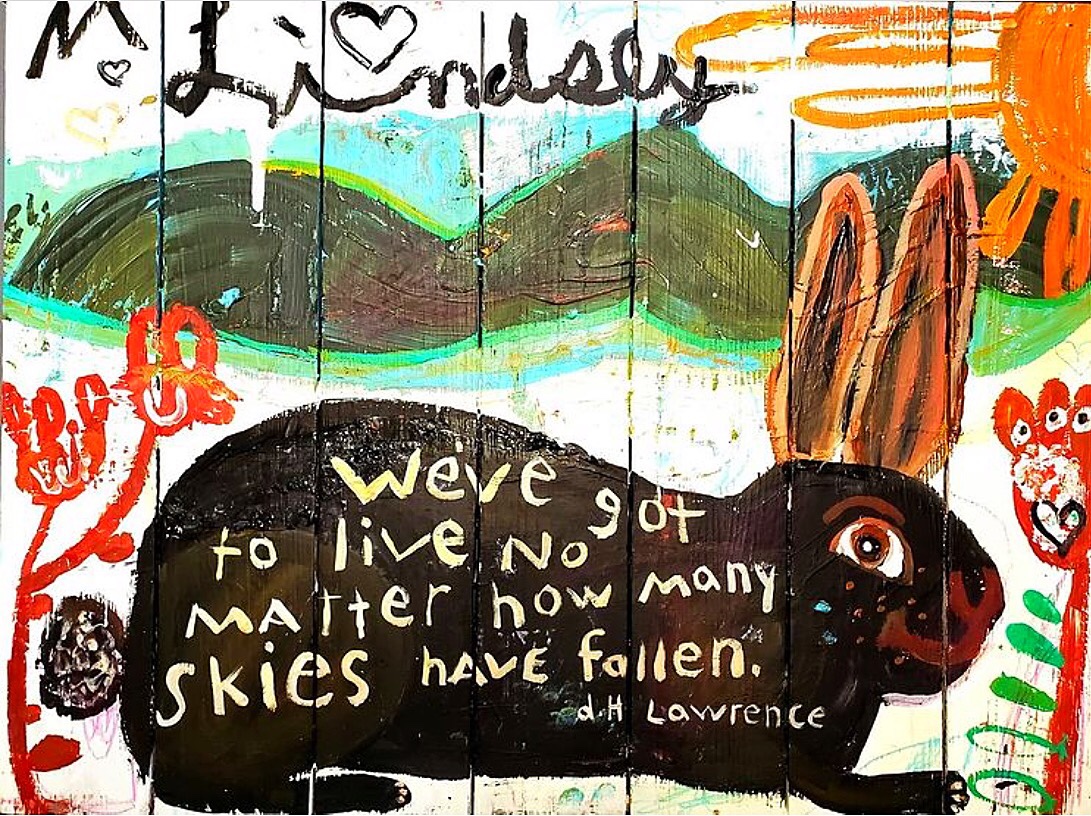 M. Lindsly
We've got
to live No
mATTer how many
skies hAVE fallen.
d.H Lawrence